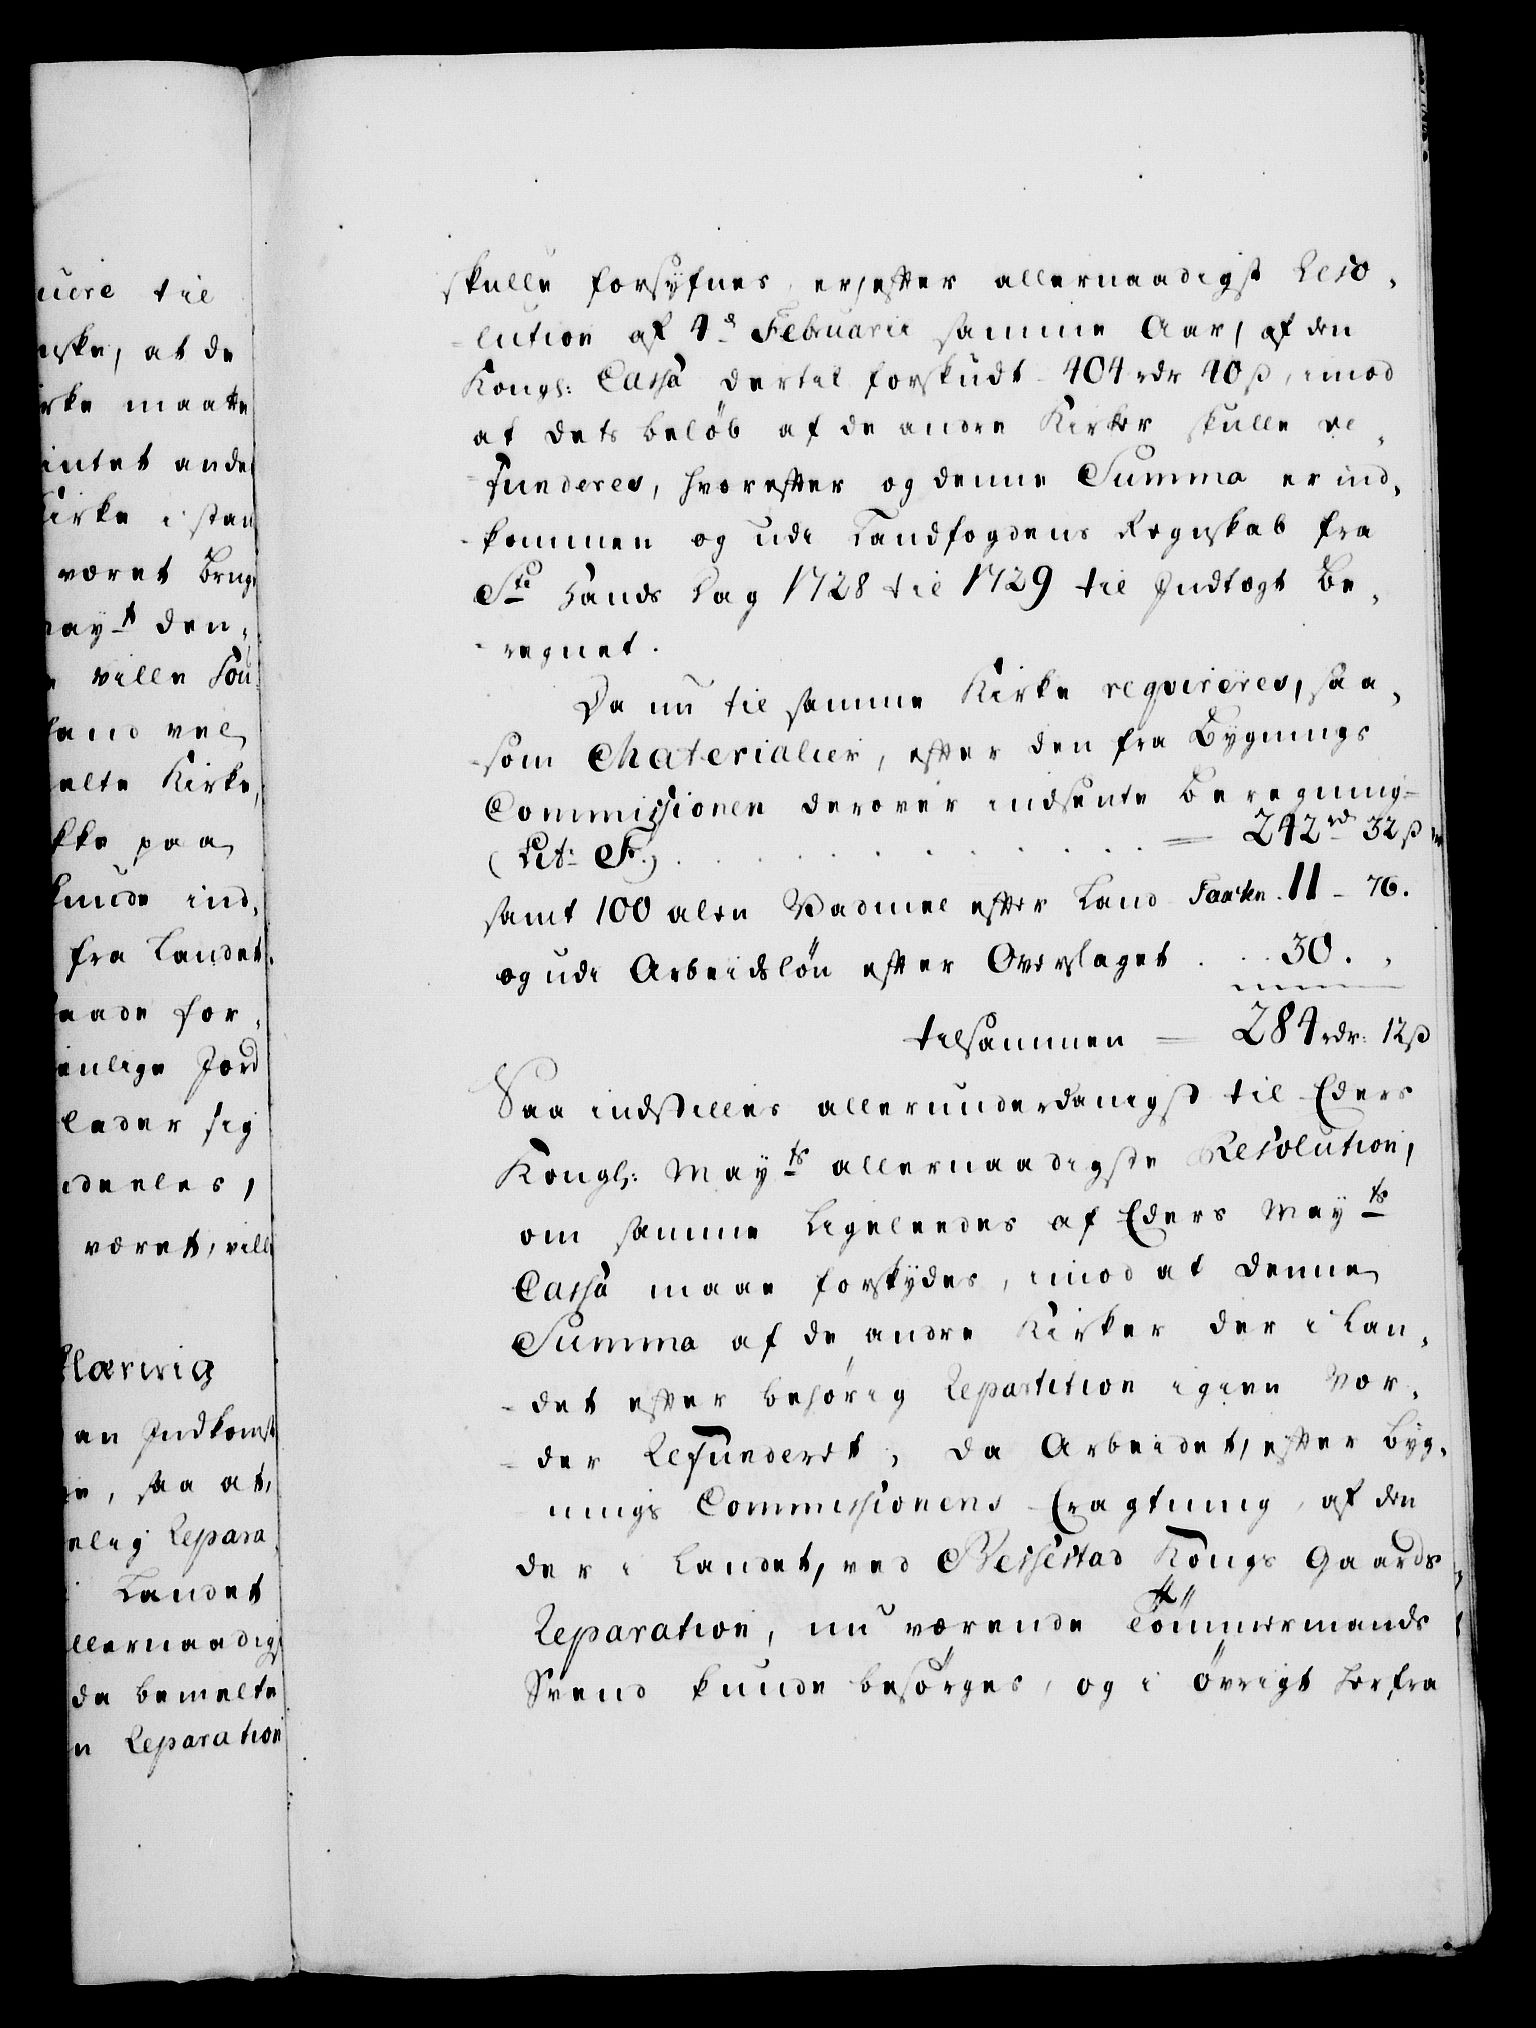 uere til
nske, at de
rke maatte
intet andet
Kirke i stan
været brug
may:t den,
ville Sou
land vel
elte Kirke,
kke paa
kunde ind,
fra Landet.
aade for,
enlige Jord
lader sig
ideeles,
været, vill
Hærwig
an Indkomst
e, saa at,
elig Repara
Landet
llernaadigs
da bemelte
n Reparation
skulle forsyynes, er efter allernaadigst Reso,
-lution af 4e Februarii samme Aar, af den
Kongl: Cassa dertil forskudt 404 rdr 40 ß, imod
at dets beløb af de andre Kirker skulle re,
-funderes, hvorefter og denne Summa er ind,
-kommen og udi Landfogdens Regnskab fra
Ste Hands Dag 1728 til 1729 til Indtægt be,
-regnet.
Da nu til samme Kirke reqvireres, saa,
-som Materialier, efter den fra Bygnings
Commissionen derover indsente Beregning
(Lit: F.) . . . . . . . . . = 242 rd 32 ß
samt 100 alen Vadmel efter Land Taxten . 11 - 76.
og udi Arbeidsløn efter Overslaget . . . 30. „
tilsammen = 284 rdr: 12 ß
Saa indstilles allerunderdanigst til Eders
Kongl: May:ts allernaadigste Resolution,
om samme ligeleedes af Eders May:ts
Cassa maae forskydes, imod at denne
Summa af de andre Kirker der i Lan,
-det efter behørig Repartition igien vor,
-der Refunderet, da Arbeidet, efter Byg,
nings Commissionens Eragtning, af den
der i Landet, ved Bessestad Kongs Gaards
Reparation, nu værende Tømmermands
Svend kunde besørges, og i øvrigt herfra